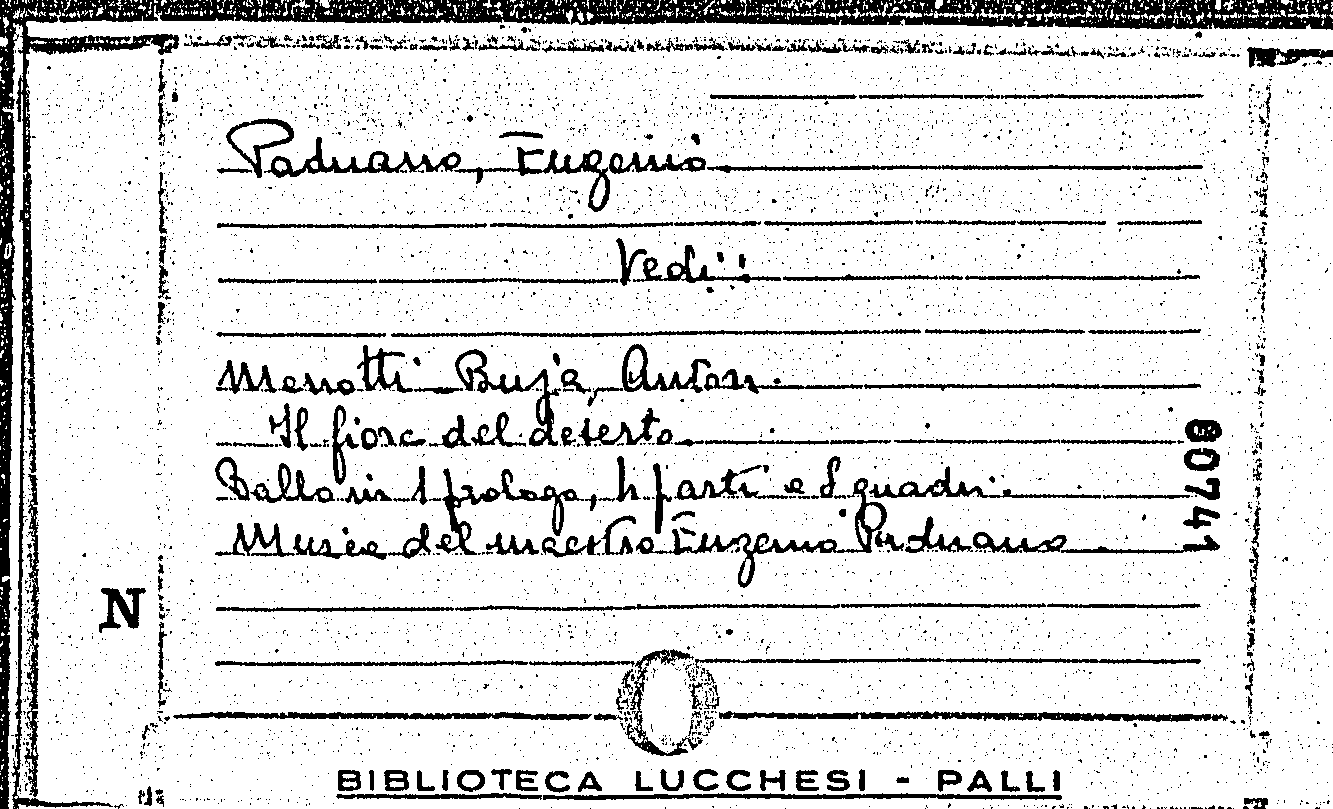 Paduano, Eugenio.
Vedi:
Menotti Buja, Anton.
Il fiore del deserto.
Ballo in 1 prologo, 4 parti e 8 quadri.
Musica del maestro Eugenio Paduano
60741
N
BIBLIOTECA LUCCHESI - PALLI